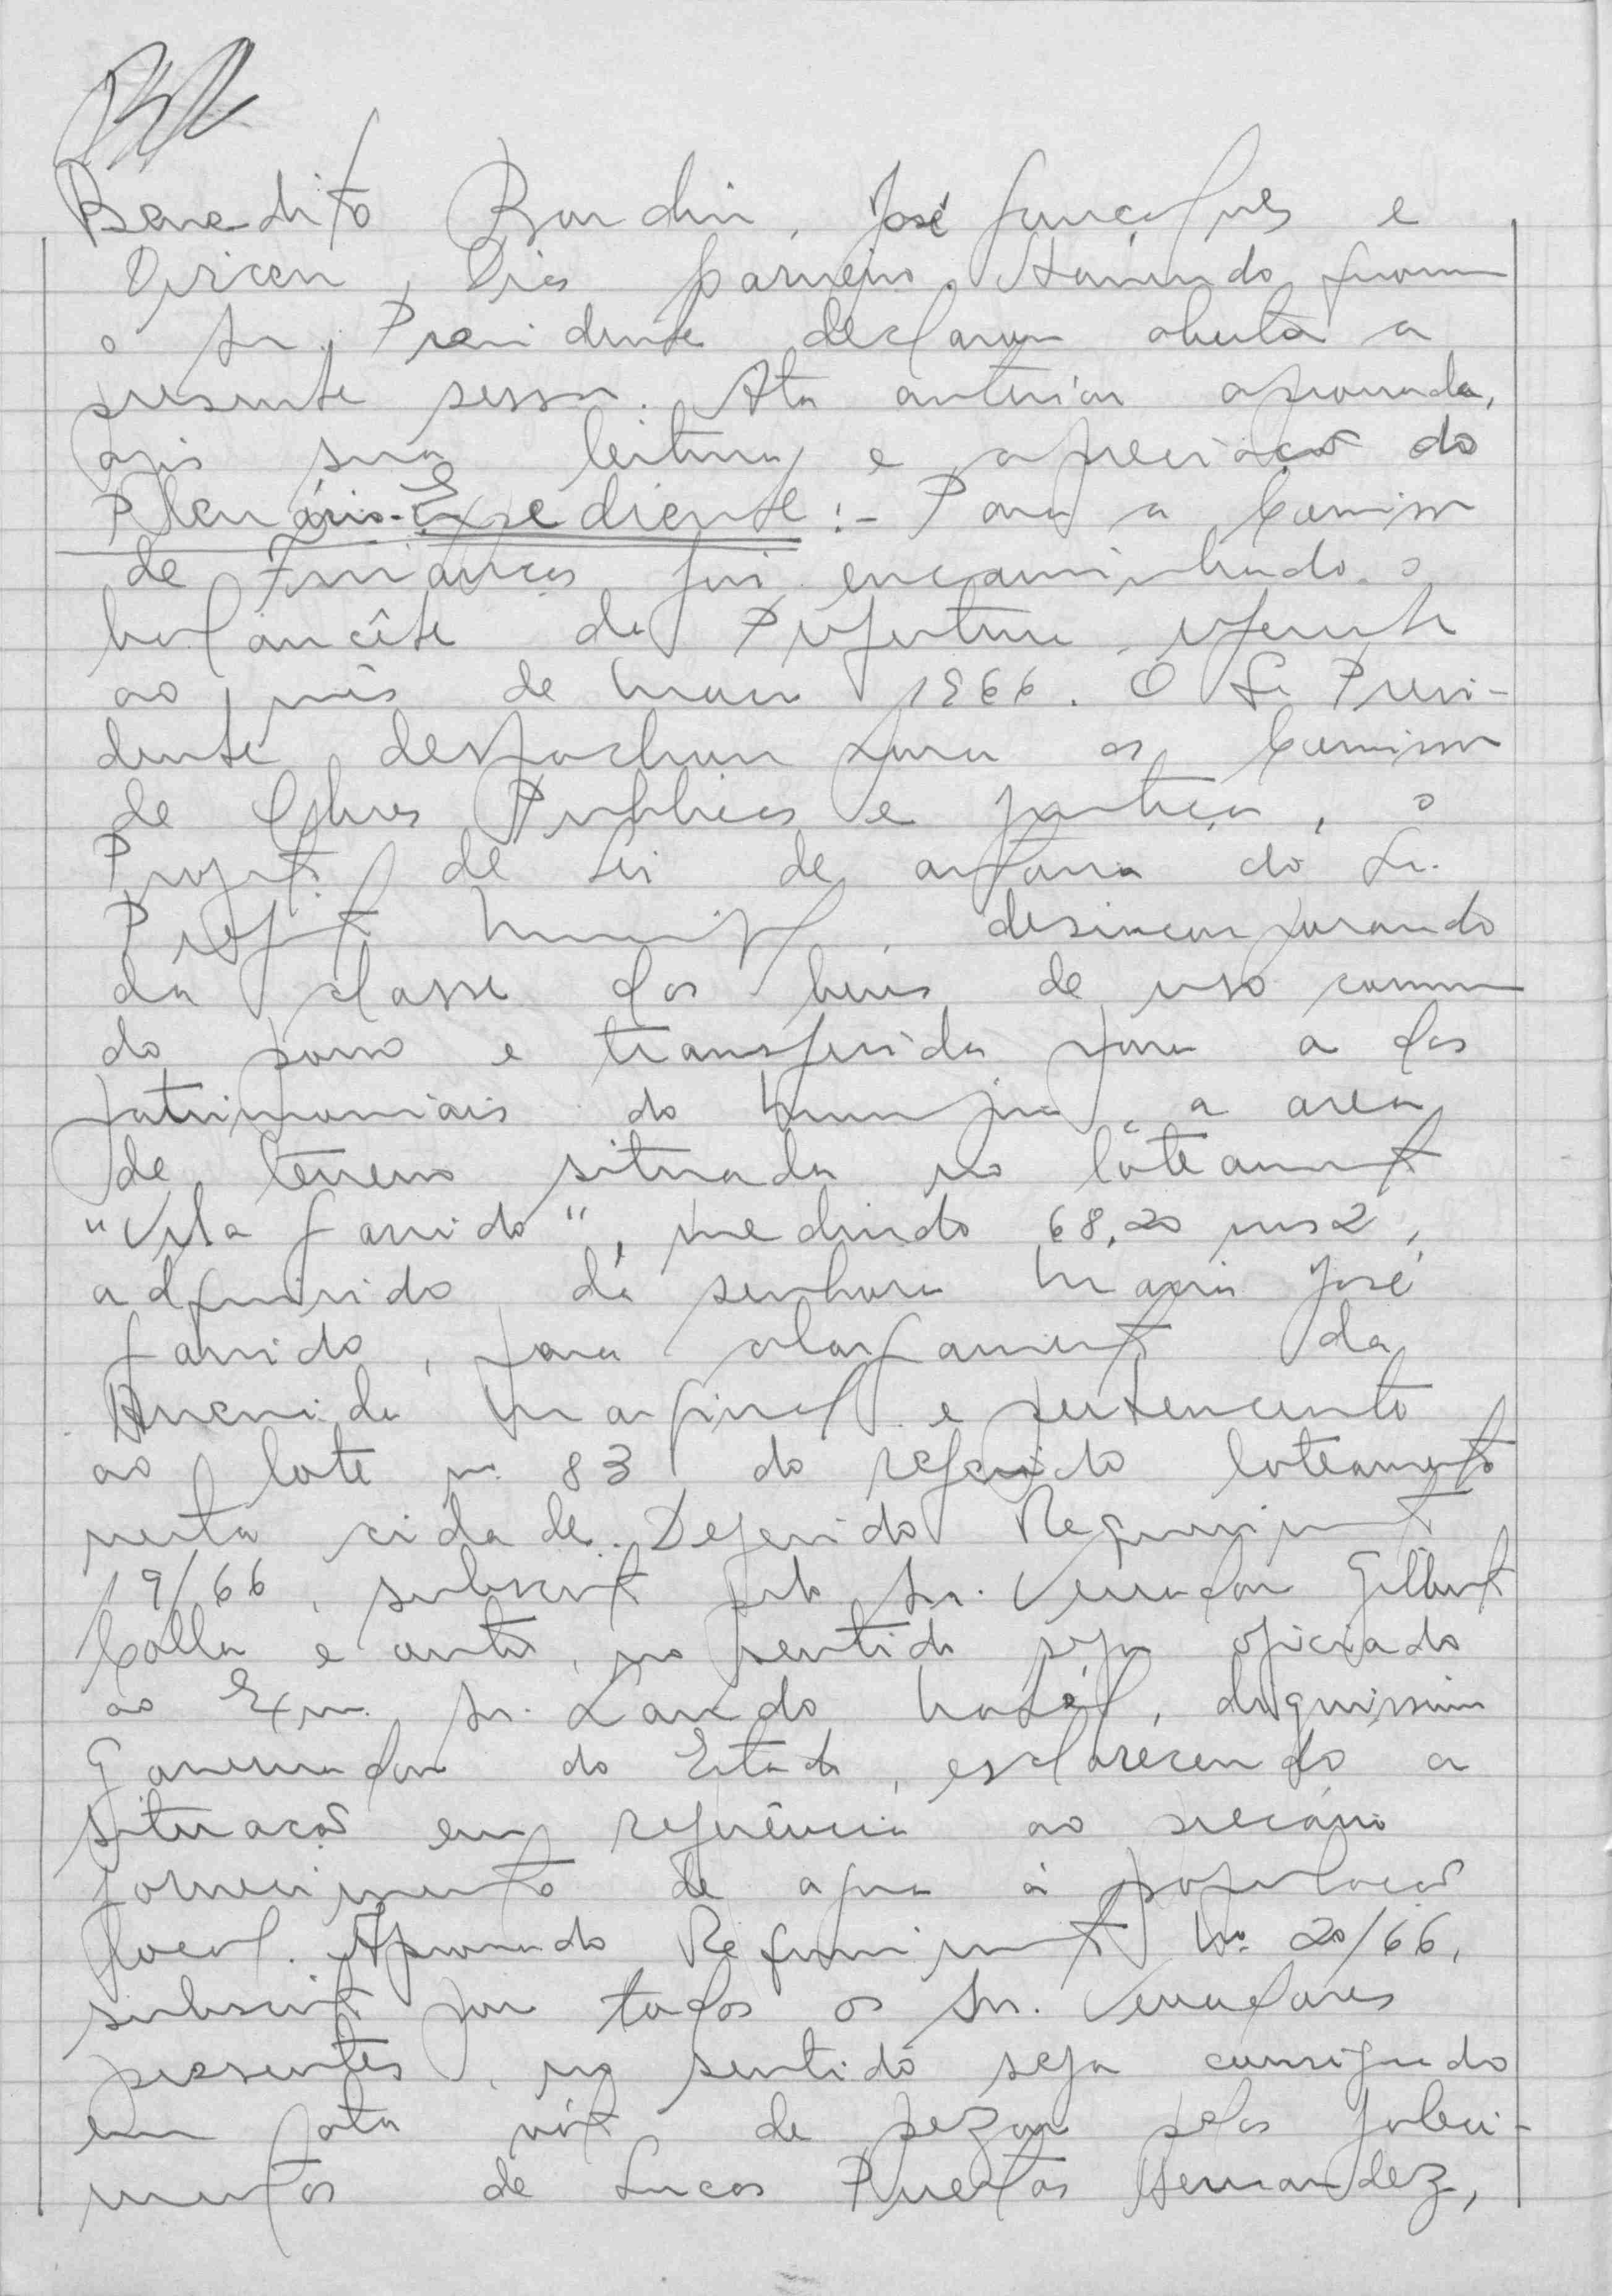 Benedito Bordin, José Gonçalves e
Dirceu Dias Carneiro. Havendo
o Sr. Presidente declarou aberta a
presente sessão. Ata anterior aprovada,
após sua leitura e apreciação do
Plenário - Expediente:- Para a Comissão
de Finanças foi encaminhado o
balancête da Prefeitura referente
ao mês de 1966. O Sr. Presi-
dente despachou para as Comissão
de Obras Publicas e Justiça, o
Projeto de Lei de autoria do Sr.
Prefeito Municipal, desincorporando
da classe dos bens de uso comum
do povo e transferida para a dos
patrimoniais do Municipio, a area
de terreno situada no lôteamento
"Vila Garrido", medindo 68,20 ms2,
adquirido da senhora Maria José
Garrido, para alargamento da
Avenida Marginal e pertencente
ao lote n. 83 do referido loteamento
nesta cidade. Deferido Requerimento
19/66, subscrito pelo Sr. Vereador Gilberto
Colla e outros, no sentido seja oficiado
ao Exmo. Sr. Laudo Natél, dignissimo
Governador do Estado, esclarecendo a
situação em referência ao precário
fornecimento de agua à população
local. Aprovado Requerimento No. 20/66,
subscrito por todos os Srs. Vereadores
presentes, no sentido seja consignado
em ata vóto de pezar pelos faleci-
mentos de Lucas Puertas Hernandez,